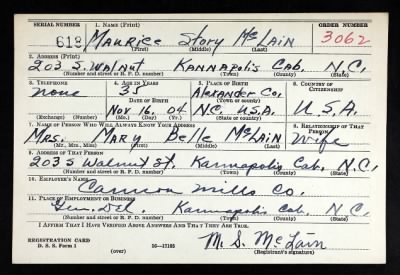 SERIAL NUMBER 1. Name (Print) ORDER NUMBER
618 Maurice Story McLain 3062
(First) (Middle) (Last)
2. Address (Print)
203 S. Walnut Kannapolis Cab. N.C.
(Number and street or R. F. D. number) (Town) (County) (State)
3. Telephone 4. Age in Years 5. Place of Birth 6. Country of Citizenship
none 35 Alexander Co.
Date of Birth (Town or county)
Nov 16, 04 N.C. U.S.A. U.S.A.
(Exchange) (No.) (Mo.) (Day) (Yr.) (State or country)
7. Name of Person Who Will Always Know Your Address 8. Relationship of That Person
Mrs. Mary Belle McLain Wife
(Mr., Mrs., Miss) (First) (Middle) (Last)
9. Address of That Person
203 S Walnut St. Kannapolis Cab. N.C.
(Number and street or R. F. D. number) (Town) (County) (State)
10. Employer's Name
Cannon Mills Co.
11. Place of Employment or Business
Gen. Del. Kannapolis Cab. N.C.
(Number and street or R. F. D. number) (Town) (County) (State)
I Affirm That I Have Verified Above Answers and That They Are True.
REGISTRATION CARD
D. S. S. Form 1 (over) 16—17105 M. S. McLain
(Registrant's signature)